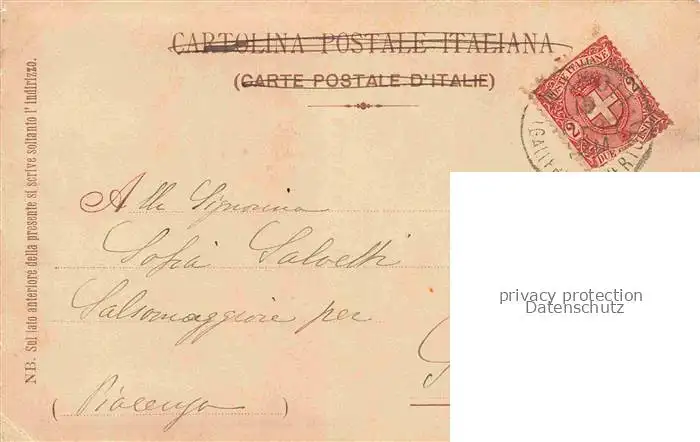 CARTOLINA POSTALE ITALIANA
(CARTE POSTALE D'ITALIE)
POSTE ITALIANE
2 2
DUE CENTESIMI
NB. Sul lato anteriore della presente si scrive soltanto l'indirizzo.
Alla Signorina
Sofia Salvetti
Salsomaggiore per
(Piacenza)
privacy protection
Datenschutz